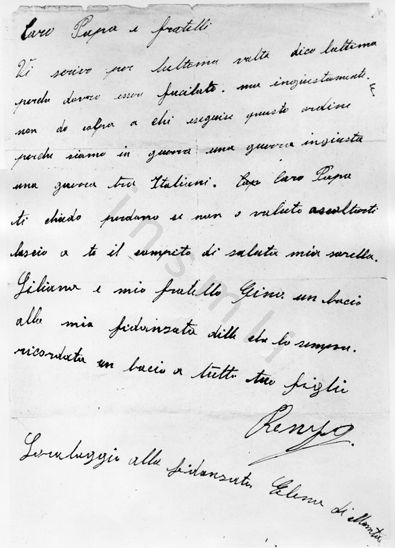 Caro Papa e fratelli
Vi scrivo per lultema volta dico lultema
perche dovro esser fucilato. ma ingiustamente. E
non do colpa a chi eseguise questo ordine
perche siamo in guerra una guerra ingiusta
una guerra tra Italiani. Caro Papa
ti chiedo perdono se non o voluto ascoltarti
lascio a te il compito di saluta mia sorella.
Liliana e mio fratello Gino. un bacio
alla mia fidanzata dille che lo sempre.
ricordata un bacio a tutti tuo figlio
Renzo.
alla fidanzata Elena di
INSMLI